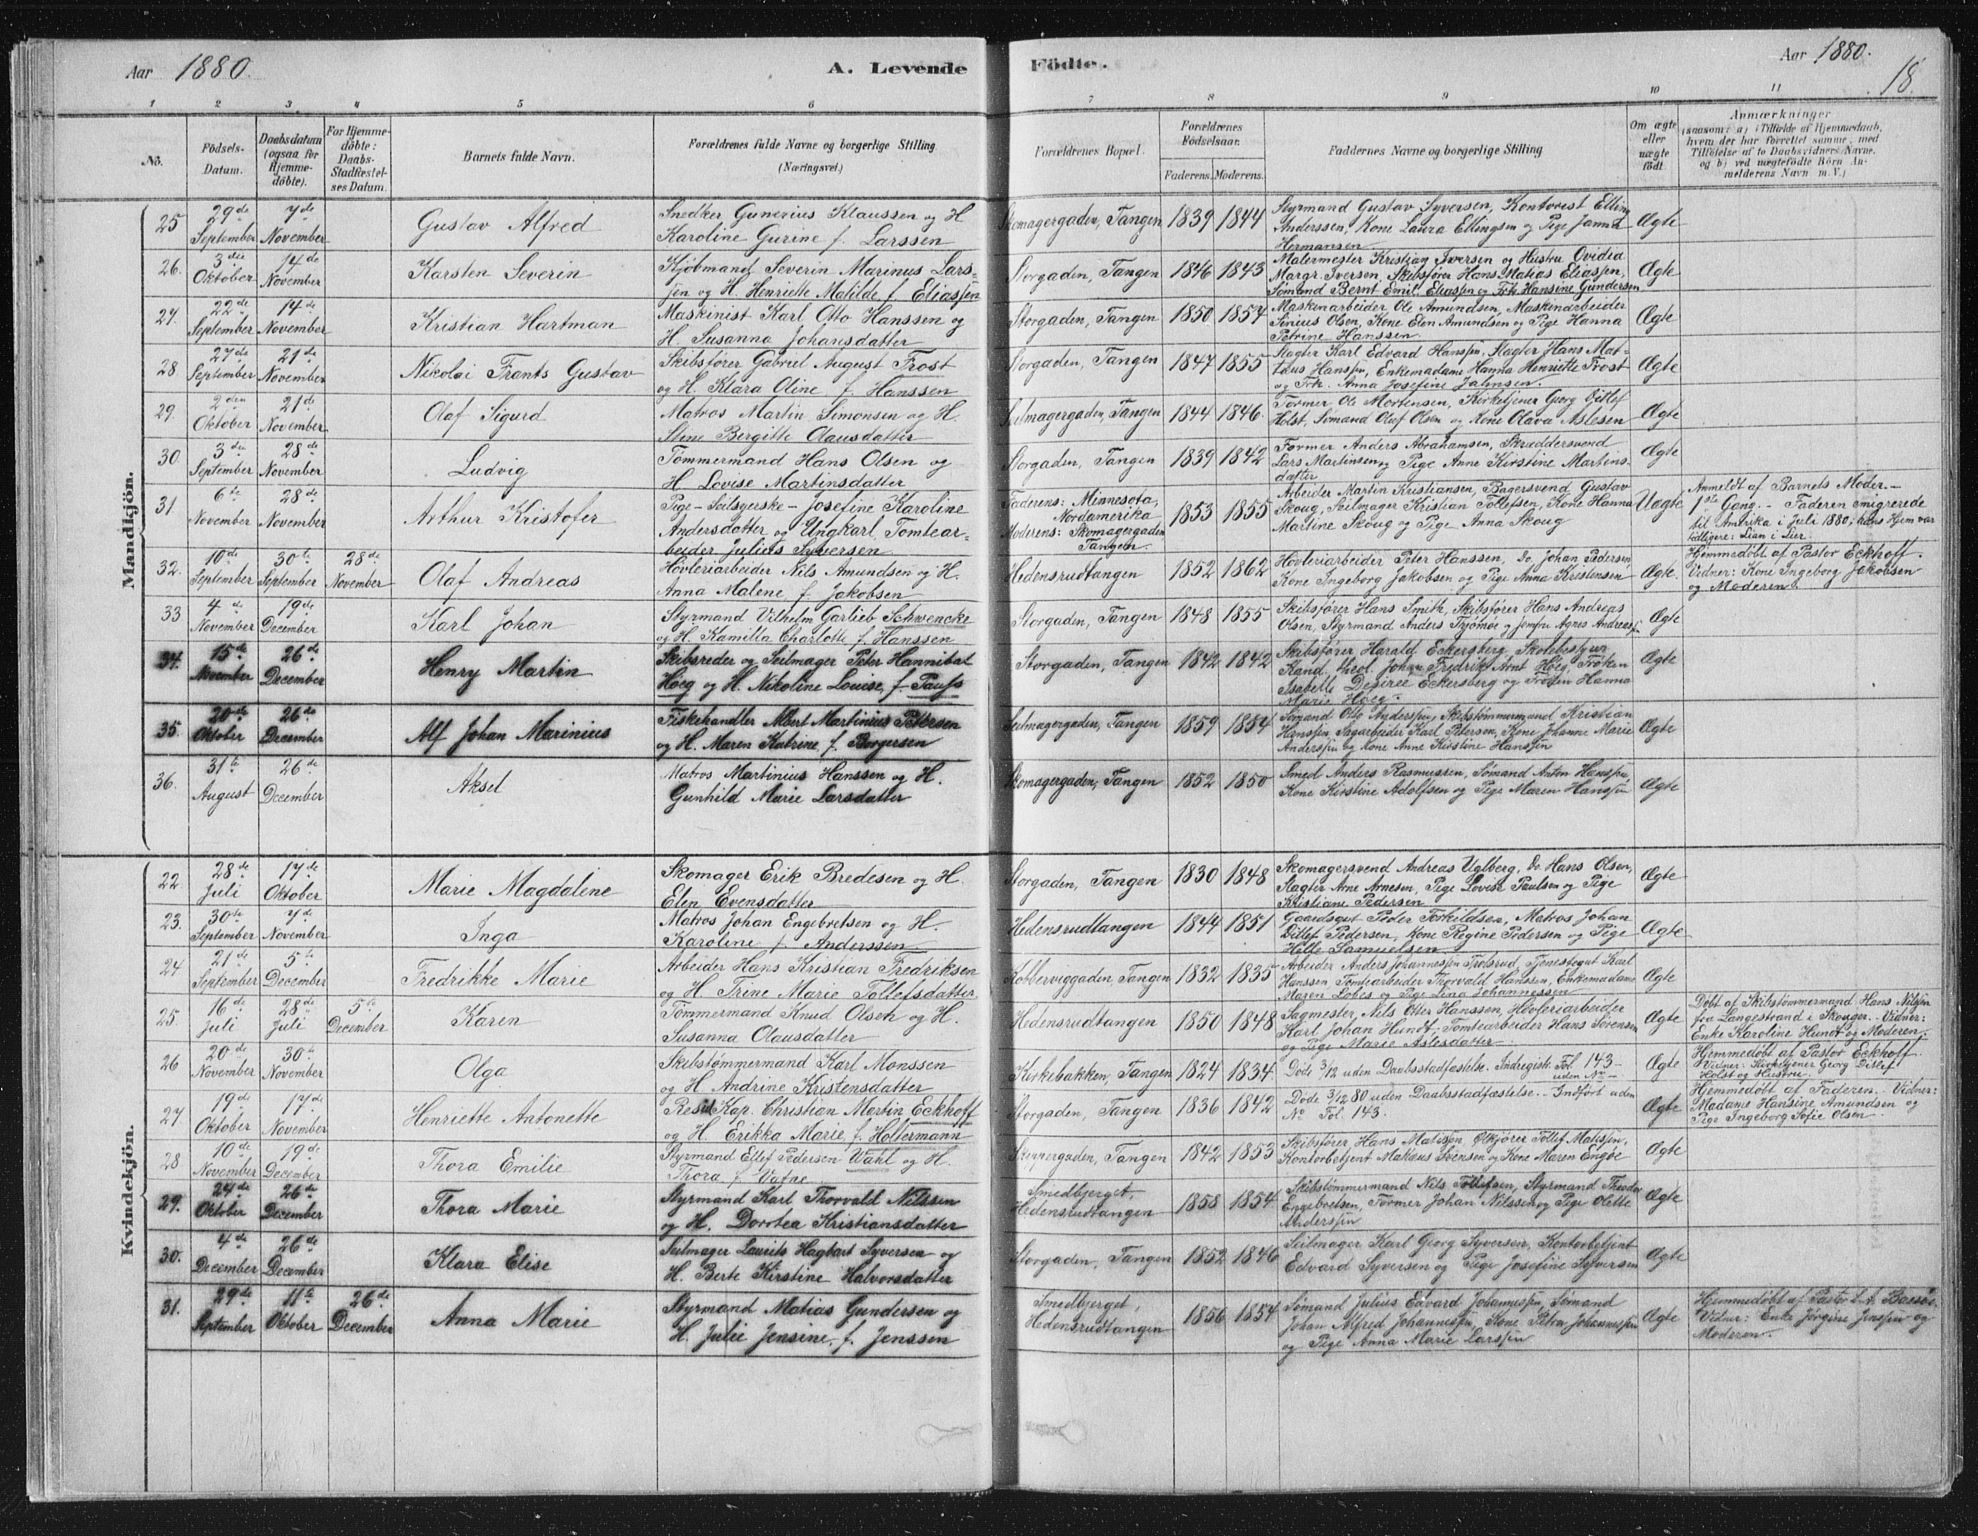 Aar 1880.
A. Levende
Födte.
Aar 1880.
18.
1 2 3 4 5 6 7 8 9 10 11
No.
Födsels-
Datum.
Daabsdatum
(ogsaa for
Hjemme-
döbte).
For Hjemme-
döbte:
Daabs-
Stadfæstel-
ses Datum.
Barnets fulde Navn.
Forældrenes fulde Navne og borgerlige Stilling
(Næringsvei.)
Forældrenes Bopæl.
Forældrenes
Födselsaar.
Faderens. Moderens.
Faddernes Navne og borgerlige Stilling
Om ægte
eller
uægte
födt.
Anmærkninger
(saasom: a) i Tilfælde af Hjemmedaab,
hvem der har forrettet samme, med
Tilföielse af to Daabsvidners Navne.
og b) ved uægtefödte Börn An-
melderens Navn m. V.)
Mandkjön.
25 29de September 7de November
Gustav Alfred
Snedker Gunerius Klaussen og H
Karoline Gurine f. Larssen
Skomagergaden, Tangen 1839 1844
Styrmand Gustav Syversen, Kontorist Elling
Anderssen, Kone Laura Ellingsen og Pige Janna
Hermansen.
Ægte
26. 3die Oktober 14de November
Karsten Severin
Kjøbmand Severin Marinus Lars-
sen og H. Henriette Matilde f. Eliassen
Storgaden, Tangen 1846 1843
Malermester Kristian Iversen og Hustru Ovidia
Margr. Iversen, Skibsfører Hans Matias Eliassen,
Sømand Bernt Emil Eliassen og Frk. Hansine Gundersen
Ægte
27. 22de September 14de November
Kristian Hartman
Maskinist Karl Otto Hanssen og
H. Susanna Johansdatter
Storgaden, Tangen 1850 1857
Maskinarbeider Ole Amundsen, Maskinarbeider
Sinius Olsen, Kone Elen Amundsen og Pige Hanna
Petrine Hanssen
Ægte
28. 27de September 21de November
Nikolai Frants Gustav
Skibsfører Gabriel August Frost
og H. Klara Oline f. Hanssen
Storgaden, Tangen 1847 1855
Slagter Karl Edvard Hanssen, Slagter Hans Mat-
tæus Hanssen, Enkemadame Hanna Henriette Frost
og Frk. Anna Josefine Jahnsen.
Ægte
29. 2den Oktober 21de November
Olaf Sigurd
Matros Martin Simonsen og H.
Stine Bergitte Olausdatter
Seilmagergaden, Tangen 1844 1846.
Former Ole Mortensen, Kirketjener Georg Ditlef
Holst, Sømand Oluf Olsen og Kone Olava Aslesen
Ægte
30. 3die September 28de November
Ludvig
Tømmermand Hans Olsen og
H. Lovise Martinsdatter
Storgaden, Tangen 1839 1842
Former Anders Abrahamsen, Skræddersvend
Lars Martinsen og Pige Anne Kirstine Martens-
datter
Ægte
31 6te November 28de November
Arthur Kristofer
Pige - Seilsyerske - Josefine Karoline
Andersdatter og Ungkarl, Tomtear-
beider Julius Syversen
Faderens: Minnesota,
Nordamerika
Moderens: Skomagergaden
Tangen. 1853 1855
Arbeider Martin Kristiansen, Bagersvend Gustav
Skoug, Seilmager Kristian Tollefsen, Kone Hanna
Martine Skoug og Pige Anna Skoug
Uægte
Anmeldt af Barnets Moder. -
1ste Gang. - Faderen emigrerede
til Amerika i Juli 1880; hans Hjem var
tidligere: Lian i Lier.
32. 10de September 30te September 28de November
Olaf Andreas
Høvleriarbeider Nils Amundsen og H.
Anna Malene f. Jakobsen
Hedensrudtangen 1852 1862
Høvleriarbeider Peter Hanssen, Do Johan Pedersen
Kone Ingeborg Jakobsen og Pige Anna Kristensen
Ægte.
Hjemmedøbt af Pastor Eckhoff.
Vidner: Kone Ingeborg Jakobsen
og Moderen.
33 4de November 19de December
Karl Johan
Styrmand Vilhelm Garlieb Schwencke
og H. Kamilla Charlotte f. Hanssen
Storgaden, Tangen 1848 1855
Skibsfører Hans Smith, Skibsfører Hans Andreas
Olsen, Styrmand Anders Tjømøe og Jomfru Agnes Andreasen
Ægte
34. 15de November 26de December
Henry Martin
Skibsreder og Seilmager Peter Hannibal
Höeg og H. Nikoline Louise, f. Pauss
Storgaden, Tangen 1842 1842
Skibsfører Harald Eckersberg, Skolebestyrer
Kand. theol. Johan Fredrik Arnt Höeg, Frøken
Isabelle Desiree Eckersberg og Frøken Hanna
Marie Höeg.
Ægte
35. 20de Oktober 26de December
Alf Johan Marinius
Fiskehandler Albert Martinius Petersen
og H. Maren Katrine f. Borgersen
Seilmagergaden, Tangen 1859 1854
Sømand Otto Anderssen, Skibstømmermand Kristian
Hanssen, Sagarbeider Karl Petersen, Kone Johanne Marie
Anderssen og Kone Anne Kirstine Hanssen
Ægte
36. 31te August 26de December
Aksel
Matros Martinius Hanssen og H.
Gunhild Marie Larsdatter
Skomagergaden, Tangen 1852 1850
Smed Anders Rasmussen, Sømand Anton Hanssen,
Kone Kirstine Adolfsen og Pige Maren Hanssen
Ægte
Kvindekjön.
22. 28de Juli 17de Oktober
Marie Magdalene
Skomager Erik Bredesen og H.
Elen Evensdatter
Storgaden, Tangen 1830 1848
Skomagersvend Andreas Uglberg, Do Hans Olsen,
Slagter Arne Arnesen, Pige Lovise Paulsen og Pige
Kristiane Pedersen
Ægte
23. 30te September 7de November
Inga
Matros Johan Engebretsen og H.
Karoline f. Anderssen
Hedensrudtangen 1844 1851
Gaardsgut Peder Torkildsen, Matros Johan
Ditlef Pedersen, Kone Regine Pedersen og Pige
Helle Samuelsen
Ægte
24 21de September 5te December
Fredrikke Marie
Arbeider Hans Kristian Fredriksen
og H. Trine Marie Tollefsdatter
Kobbervikgaden, Tangen 1832 1835
Arbeider Anders Johannessen Trolsrud, Tjenestegut Karl
Hanssen, Tomtearbeider Thorvald Hanssen, Enkemadame
Maren Lobes og Pige Lina Johannessen
Ægte
25. 16de Juli 28de Juli 5te December
Karen
Tømmermand Knud Olsen og H.
Susanna Olausdatter
Hedensrudtangen 1850 1848
Sagmester, Nils Otter Hanssen, Høvleriarbeider
Karl Johan Hundt, Tomtearbeider Hans Sørensen
og Pige Marie Aslesdatter.
Ægte
Døbt af Skibstømmermand Hans Nilssen
fra Langestrand i Skouger. Vidner:
Enke Karoline Hundt og Moderen.
26 20de November 30te November
Olga
Skibstømmermand Karl Monssen
og H. Andrine Kristensdatter
Kirkebakken, Tangen 1824 1834
Døde 3/12 uden Daabsstadfæstelse. Indregistr. Fol. 143 -
uden No -
Ægte
Hjemmedøbt af Pastor Eckhoff.
Vidner: Kirketjener Georg Ditlef
Holst og Hustru.
27 19de Oktober 17de November
Henriette Antonette
Resid. Kap. Christian Martin Eckhoff
og H. Erikka Marie, f. Holtermann
Storgaden, Tangen 1836 1842
Døde 3/12 80 uden Daabsstadfæstelse. - Indført uden
No Fol. 143.
Ægte
Hjemmedøbt af Faderen. - Vidner:
Madame Hansine Amundsen og
Pige Ingeborg Sofie Olsen.
28 10de November 19de December
Thora Emilie
Styrmand Ellef Pedersen Wahl og H.
Thora f. Vafne
Skippergaden, Tangen 1842 1853
Skibsfører Hans Matissen, Tollef Matissen,
Kontorbetjent Makæus Svensen og Kone Maren Engøe
Ægte
29. 24de Oktober 26de December
Thora Marie
Styrmand Karl Thorvald Nilssen
og H. Dorotea Kristiansdatter
Smedbjerget,
Hedensrudtangen 1858 1854
Skibstømmermand Nils Tollefsen, Styrmand Theodor
Engebretsen, Former Johan Nilssen og Pige Olette
Anderssen
Ægte
30. 4de December 26de December
Klara Elise
Seilmager Laurits Hagbart Syversen og
H. Berte Kirstine Halvorsdatter
Storgaden, Tangen 1852 1846
Seilmager Karl Georg Syversen, Kontorbetjent
Edvard Syversen og Pige Josefine Syversen
Ægte
31. 29de September 11te Oktober 26de December
Anna Marie
Styrmand Matias Gundersen og
H. Julie Jensine, f. Jenssen
Smedbjerget,
Hedensrudtangen 1856 1854
Sømand Julius Edvard Johannessen, Sømand
Johan Alfred Johannessen, Kone Petra Johannessen
og Pige Anna Marie Larssen
Ægte
Hjemmedøbt af Pastor
Vidner: Enke Jørgine Jenssen og
Moderen.